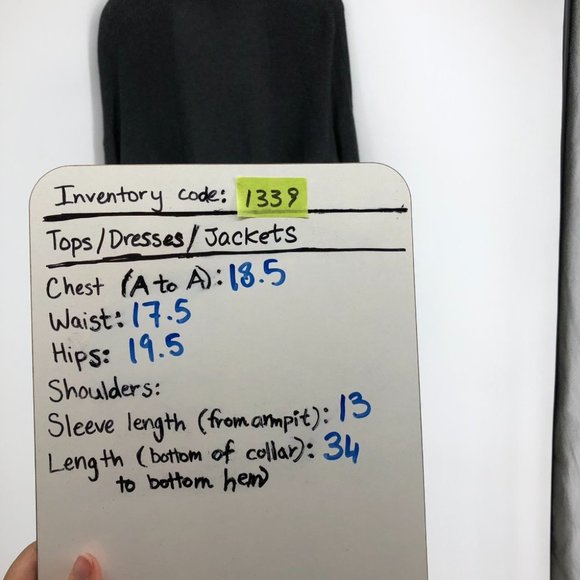 Inventory code: 1339
Tops/Dresses/Jackets
Chest (A to A): 18.5
Waist: 17.5
Hips: 19.5
Shoulders:
Sleeve length (from armpit): 13
Length (bottom of collar): 34
to bottom hem)